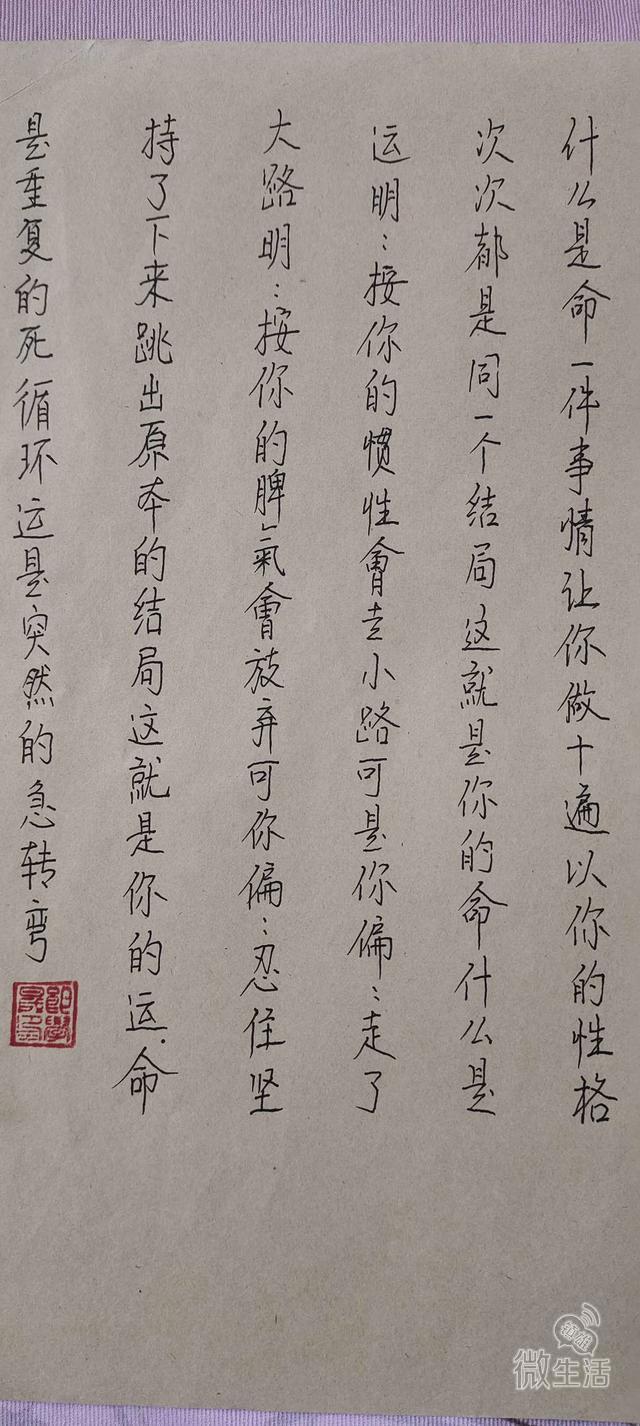 什么是命一件事情让你做十遍以你的性格
次次都是同一个结局这就是你的命什么是
运明：按你的惯性會走小路可是你偏：走了
大路明：按你的脾氣會放弃可你偏：忍住坚
持了下来跳出原本的结局这就是你的运命
是重复的死循环运是突然的急转弯
微生活